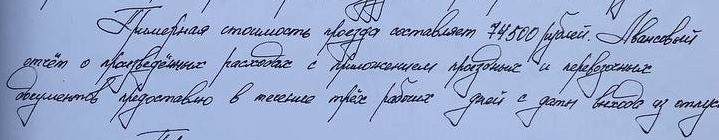 Примерная стоимость проезда составляет 74500 рублей. Авансовый
отчёт о произведённых расходах с приложением проездных и перевозочных
документов предоставлю в течение трёх рабочих дней с даты выхода из отпус